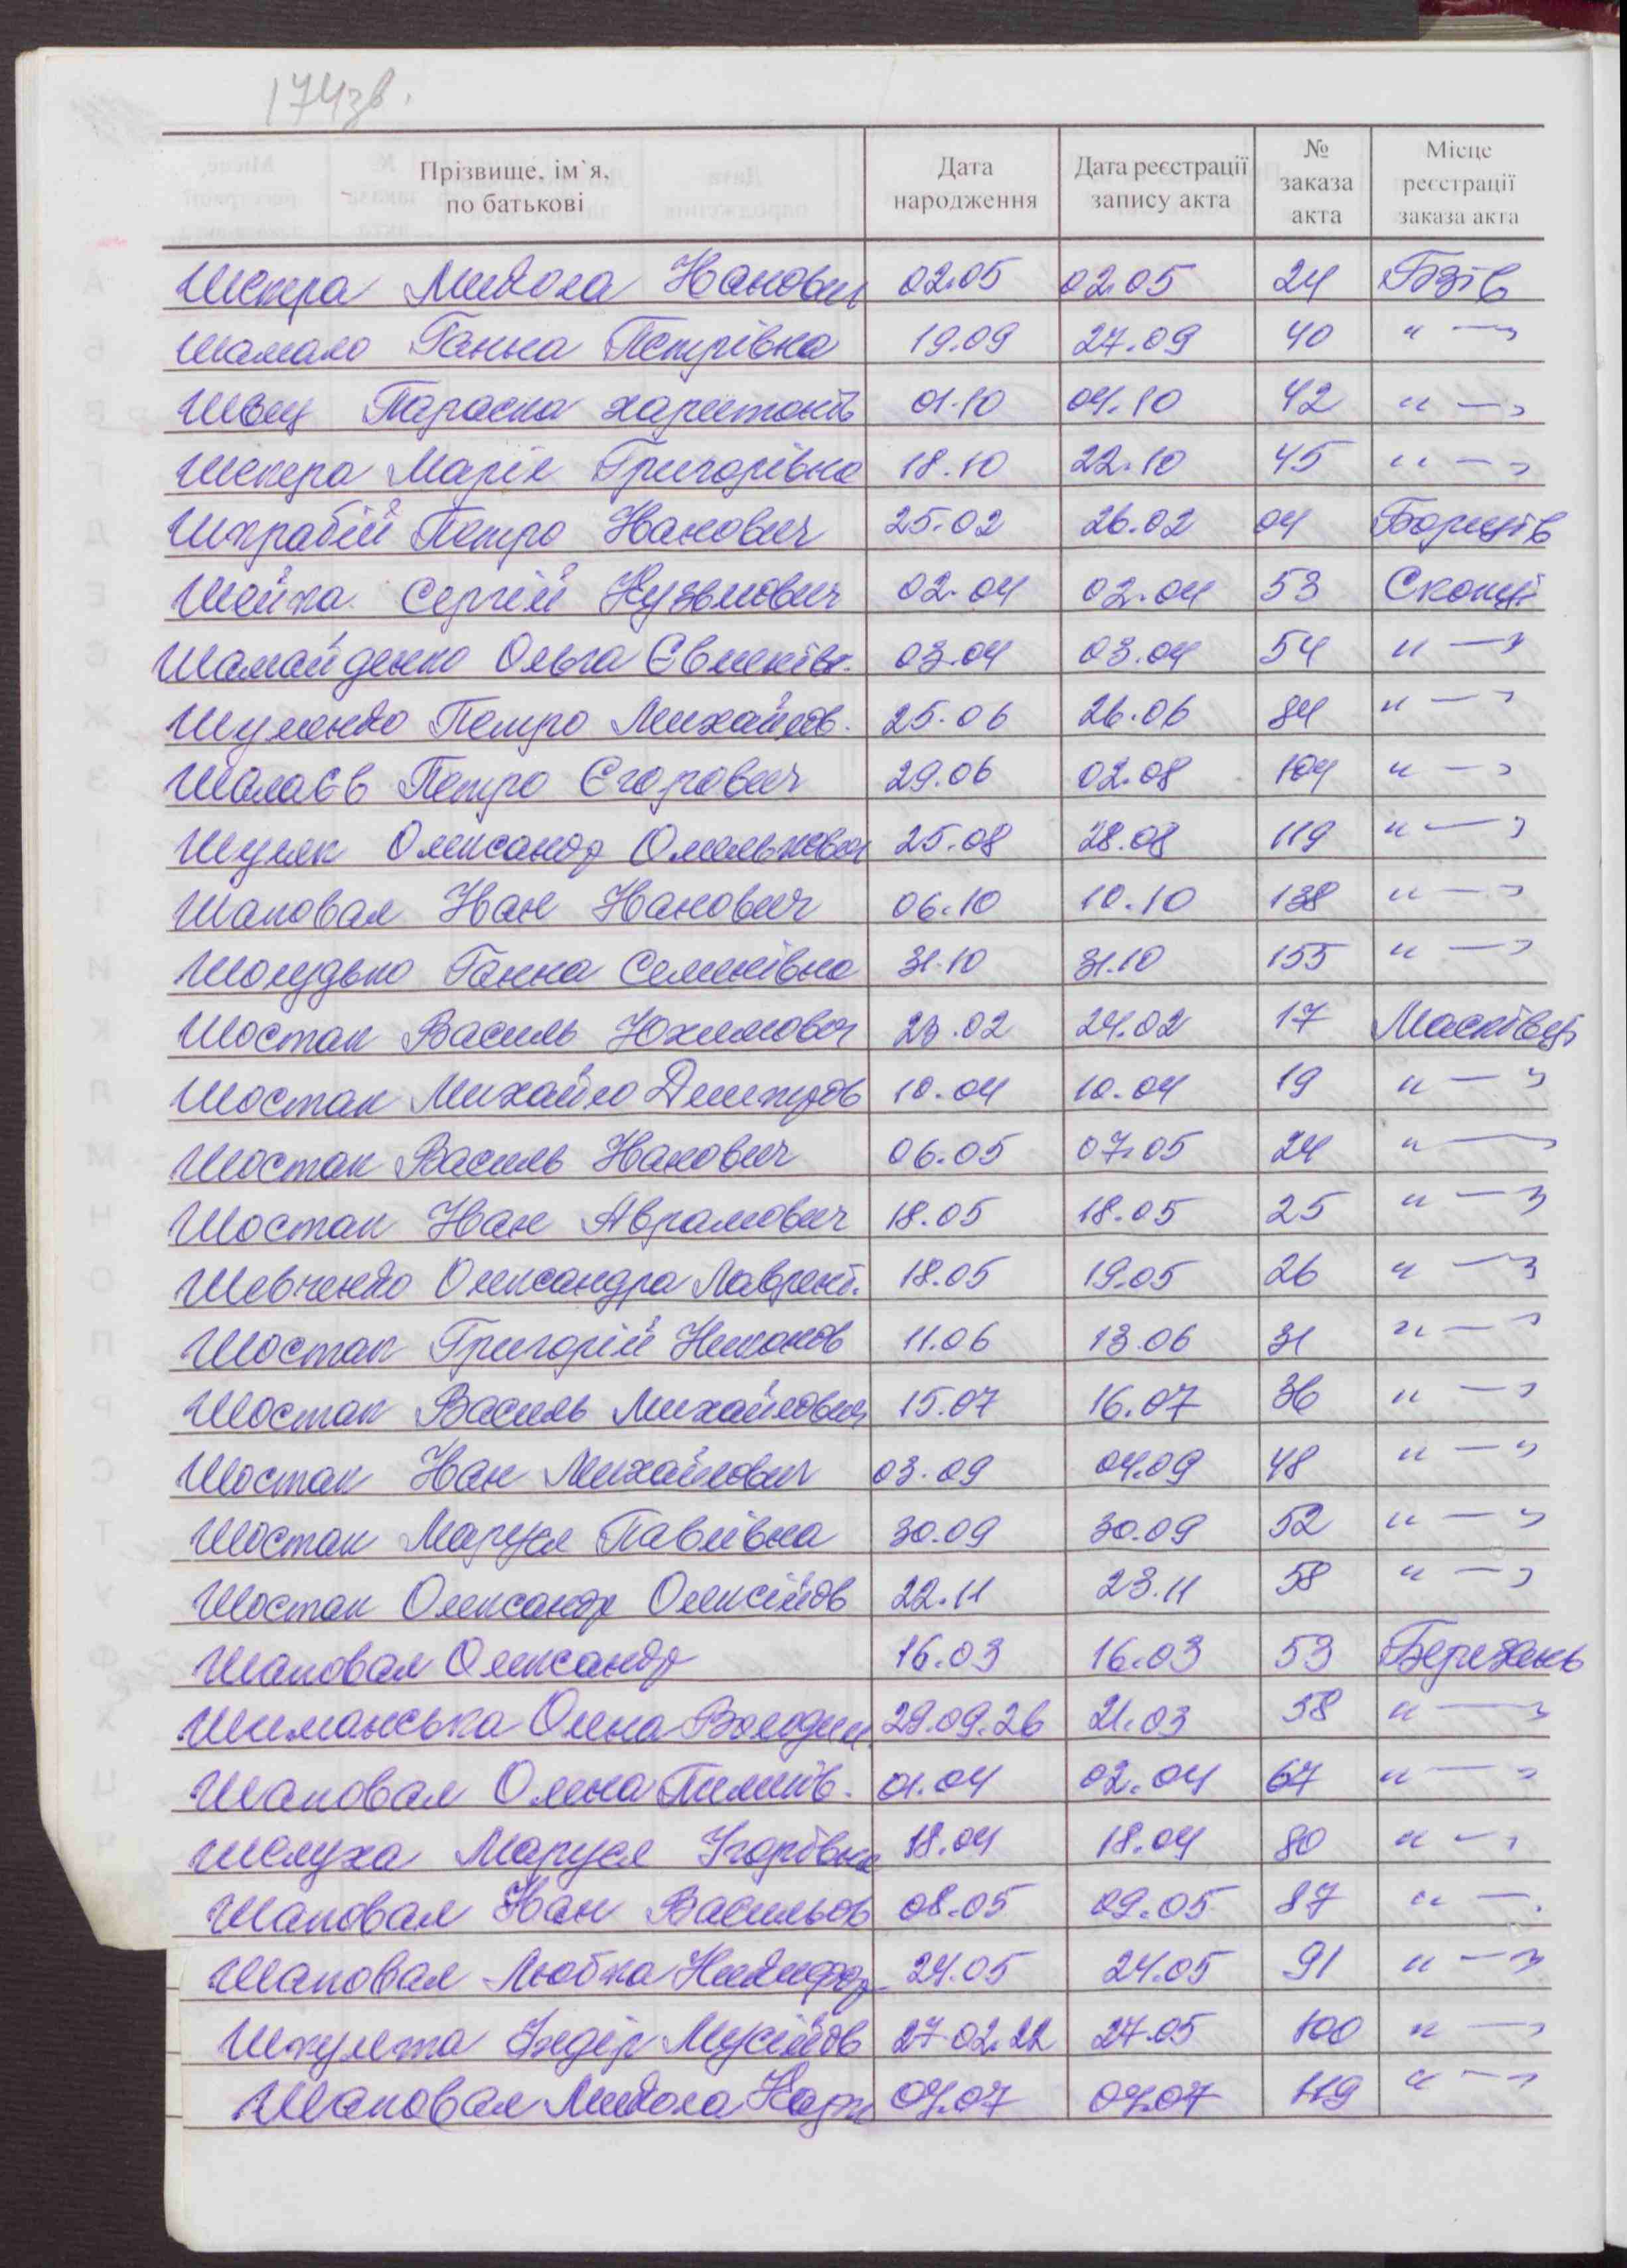 174зв.
Прізвище, ім`я, по батькові Дата народження Дата реєстрації запису акта № заказа акта Місце реєстрації заказа акта
Шекера Микола Іванович 02.05 02.05 24 Бзів
Шамало Ганна Петрівна 19.09 27.09 40 " — "
Швец Параска Харитонів 01.10 04.10 42 " — "
Шекера Марія Григорівна 18.10 22.10 45 " — "
Шкрабій Петро Іванович 25.02 26.02 04 Борщів
Шейка Сергій Кузьмович 02.04 02.04 53 Скопці
Шамайденко Ольга 03.04 03.04 54 " — "
Шуменко Петро Михайлов. 25.06 26.06 84 " — "
Шалаєв Петро Єгорович 29.06 02.08 104 " — "
Шуляк Олександр Омелькович 25.08 28.08 119 " — "
Шаповал Іван Іванович 06.10 10.10 138 " — "
Шолудько Ганна Семенівна 31.10 31.10 155 " — "
Шостак Василь Юхимович 23.02 24.02 17 Масківці
Шостак Михайло Дмитров 10.04 10.04 19 " — "
Шостак Василь Іванович 06.05 07.05 24 " — "
Шостак Іван Аврамович 18.05 18.05 25 " — "
Шевченко Олександра Лаврент. 18.05 19.05 26 " — "
Шостак Григорій Никонов 11.06 13.06 31 " — "
Шостак Василь Михайлович 15.07 16.07 36 " — "
Шостак Іван Михайлович 03.09 04.09 48 " — "
Шостак Маруся Павлівна 30.09 30.09 52 " — "
Шостак Олександр Олексійов 22.11 23.11 58 " — "
Шаповал Олександр 16.03 16.03 53 Березань
Шиманська Олена Володим. 29.09.26 21.03 58 " — "
Шаповал Олена Пилипів. 01.04 02.04 67 " — "
Шелуха Маруся Ігорівна 18.04 18.04 80 " — "
Шаповал Іван Васильов 08.05 09.05 87 " — "
Шаповал Любка Никифор 24.05 24.05 91 " — "
Шкулета Мусійов 27.02.22 27.05 100 " — "
Шаповал Микола 04.07 04.07 119 " — "